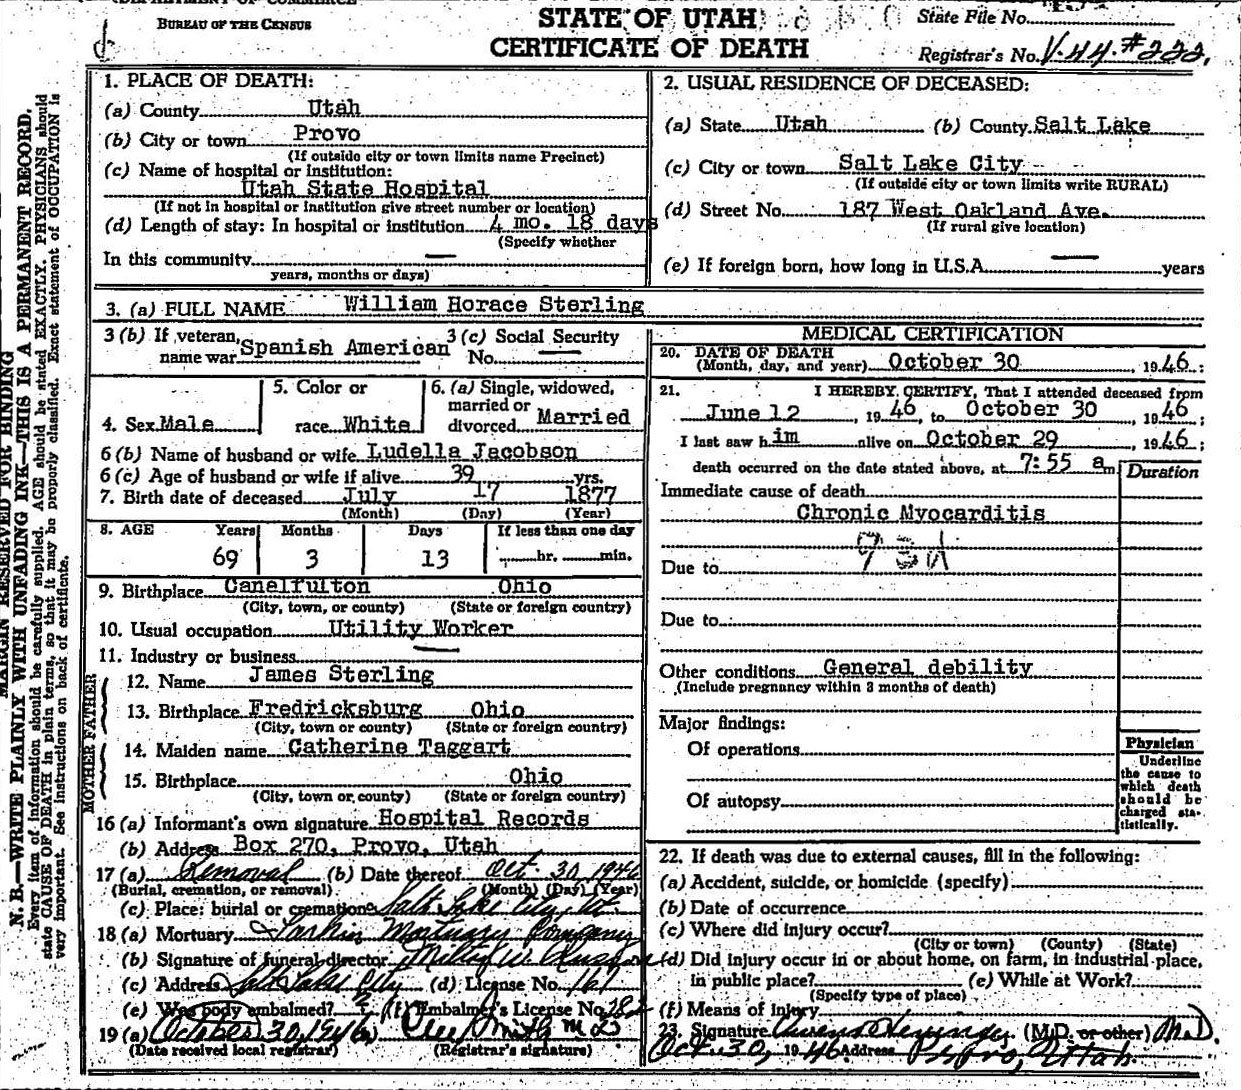 BUREAU OF THE CENSUS
STATE OF UTAH
CERTIFICATE OF DEATH
State File No.
Registrar's No. V-44-#222.
MARGIN RESERVED FOR BINDING
N. B.—WRITE PLAINLY WITH UNFADING INK—THIS IS A PERMANENT RECORD.
Every item of information should be carefully supplied. AGE should be stated EXACTLY. PHYSICIANS should
state CAUSE OF DEATH in plain terms, so that it may be properly classified. Exact statement of OCCUPATION is
very important. See instructions on back of certificate.
1. PLACE OF DEATH:
(a) County Utah
(b) City or town Provo
(If outside city or town limits name Precinct)
(c) Name of hospital or institution:
Utah State Hospital
(If not in hospital or institution give street number or location)
(d) Length of stay: In hospital or institution 4 mo. 18 days
(Specify whether
In this community —
years, months or days)
2. USUAL RESIDENCE OF DECEASED:
(a) State Utah (b) County Salt Lake
(c) City or town Salt Lake City
(If outside city or town limits write RURAL)
(d) Street No. 187 West Oakland Ave.
(If rural give location)
(e) If foreign born, how long in U.S.A. — years
3. (a) FULL NAME William Horace Sterling
3 (b) If veteran, name war Spanish American
3 (c) Social Security No. —
4. Sex Male
5. Color or race White
6. (a) Single, widowed, married or divorced Married
6 (b) Name of husband or wife Ludella Jacobson
6 (c) Age of husband or wife if alive 39 yrs.
7. Birth date of deceased July 17 1877
(Month) (Day) (Year)
8. AGE Years Months Days If less than one day
69 3 13 hr. min.
9. Birthplace Canelfulton Ohio
(City, town, or county) (State or foreign country)
10. Usual occupation Utility Worker
11. Industry or business —
FATHER
12. Name James Sterling
13. Birthplace Fredricksburg Ohio
(City, town or county) (State or foreign country)
MOTHER
14. Maiden name Catherine Taggart
15. Birthplace Ohio
(City, town or county) (State or foreign country)
16 (a) Informant's own signature Hospital Records
(b) Address Box 270, Provo, Utah
17 (a) Removal (b) Date thereof Oct. 30, 1946
(Burial, cremation, or removal) (Month) (Day) (Year)
(c) Place: burial or cremation Salt Lake City, Ut.
18 (a) Mortuary Larkin Mortuary Company
(b) Signature of funeral director
(c) Address Salt Lake City (d) License No. 167
(e) Was body embalmed? (f) Embalmer's License No. 282
19 (a) October 30, 1946
(Date received local registrar) (Registrar's signature)
MEDICAL CERTIFICATION
20. DATE OF DEATH
(Month, day, and year) October 30, 1946;
21. I HEREBY CERTIFY, That I attended deceased from
June 12, 1946, to October 30, 1946;
I last saw him alive on October 29, 1946;
death occurred on the date stated above, at 7:55 a m.
Duration
Immediate cause of death
Chronic Myocarditis
Due to
Due to
Other conditions General debility
(Include pregnancy within 3 months of death)
Major findings:
Of operations
Of autopsy
Physician
Underline
the cause to
which death
should be
charged sta-
tistically.
22. If death was due to external causes, fill in the following:
(a) Accident, suicide, or homicide (specify)
(b) Date of occurrence
(c) Where did injury occur?
(City or town) (County) (State)
(d) Did injury occur in or about home, on farm, in industrial place,
in public place? (e) While at Work?
(Specify type of place)
(f) Means of injury
23. Signature (M.D. or other) M.D.
Oct. 30, 1946 Address Provo, Utah.